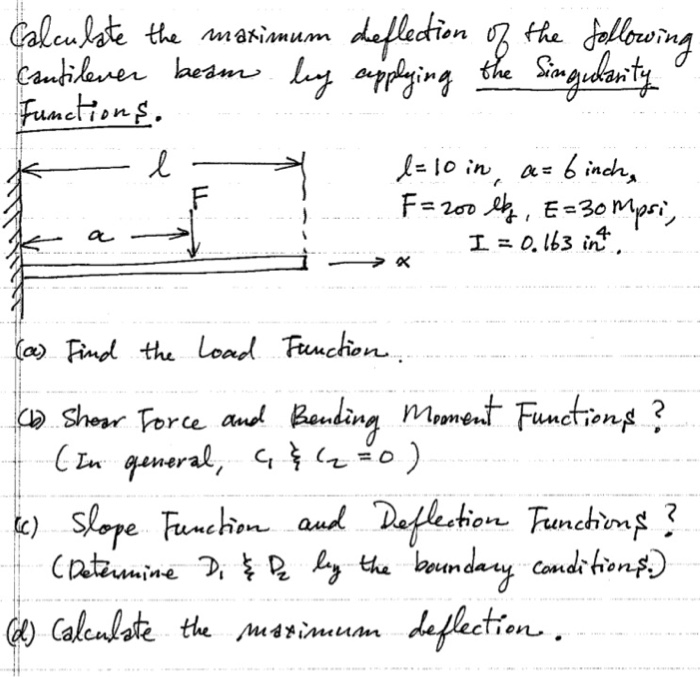 Calculate the maximum deflection of the following
Cantilever beam by applying the Singularity
Functions.
l
F
a
x
l = 10 in, a = 6 inch,
F = 200 lbf, E = 30 Mpsi,
I = 0.163 in⁴.
(a) Find the Load Function.
(b) Shear Force and Bending Moment Functions?
(In general, C₁ & C₂ = 0)
(c) Slope Function and Deflection Functions?
(Determine D₁ & D₂ by the boundary conditions.)
(d) Calculate the maximum deflection.